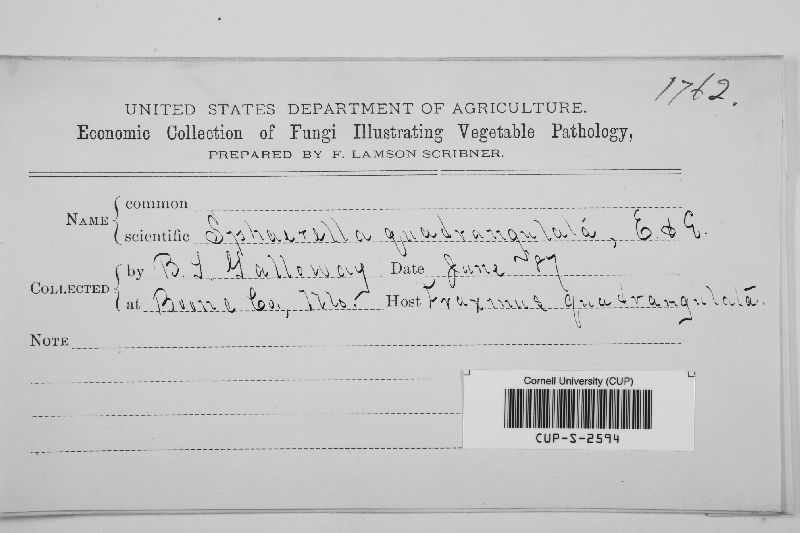 1762.
UNITED STATES DEPARTMENT OF AGRICULTURE.
Economic Collection of Fungi Illustrating Vegetable Pathology,
PREPARED BY F. LAMSON SCRIBNER.
NAME
common
scientific Sphaerella quadrangulatá, E & E.
COLLECTED
by B. T. Galloway Date June '87
at Boone Co, Mo. Host Fraxinus quadrangulatá.
NOTE
Cornell University (CUP)
CUP-S-2594